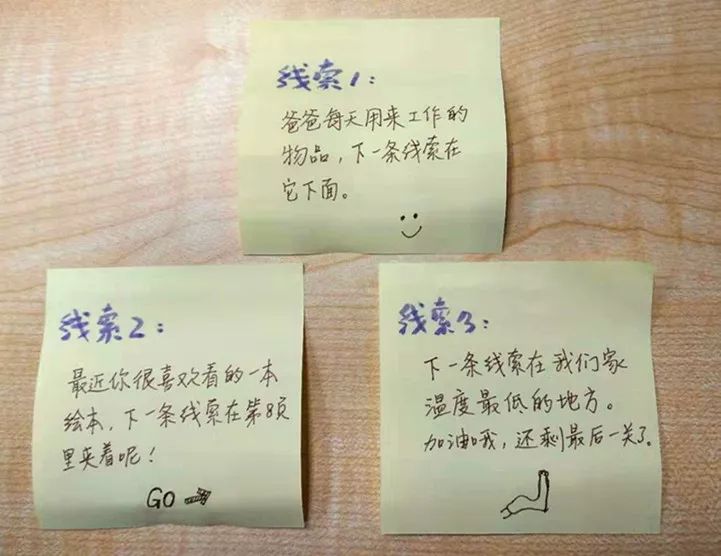 线索1:
爸爸每天用来工作的
物品，下一条线索在
它下面。
线索2:
最近你很喜欢看的一本
绘本，下一条线索在第8页
里夹着呢！
GO
线索3:
下一条线索在我们家
温度最低的地方。
加油哦，还剩最后一关了。